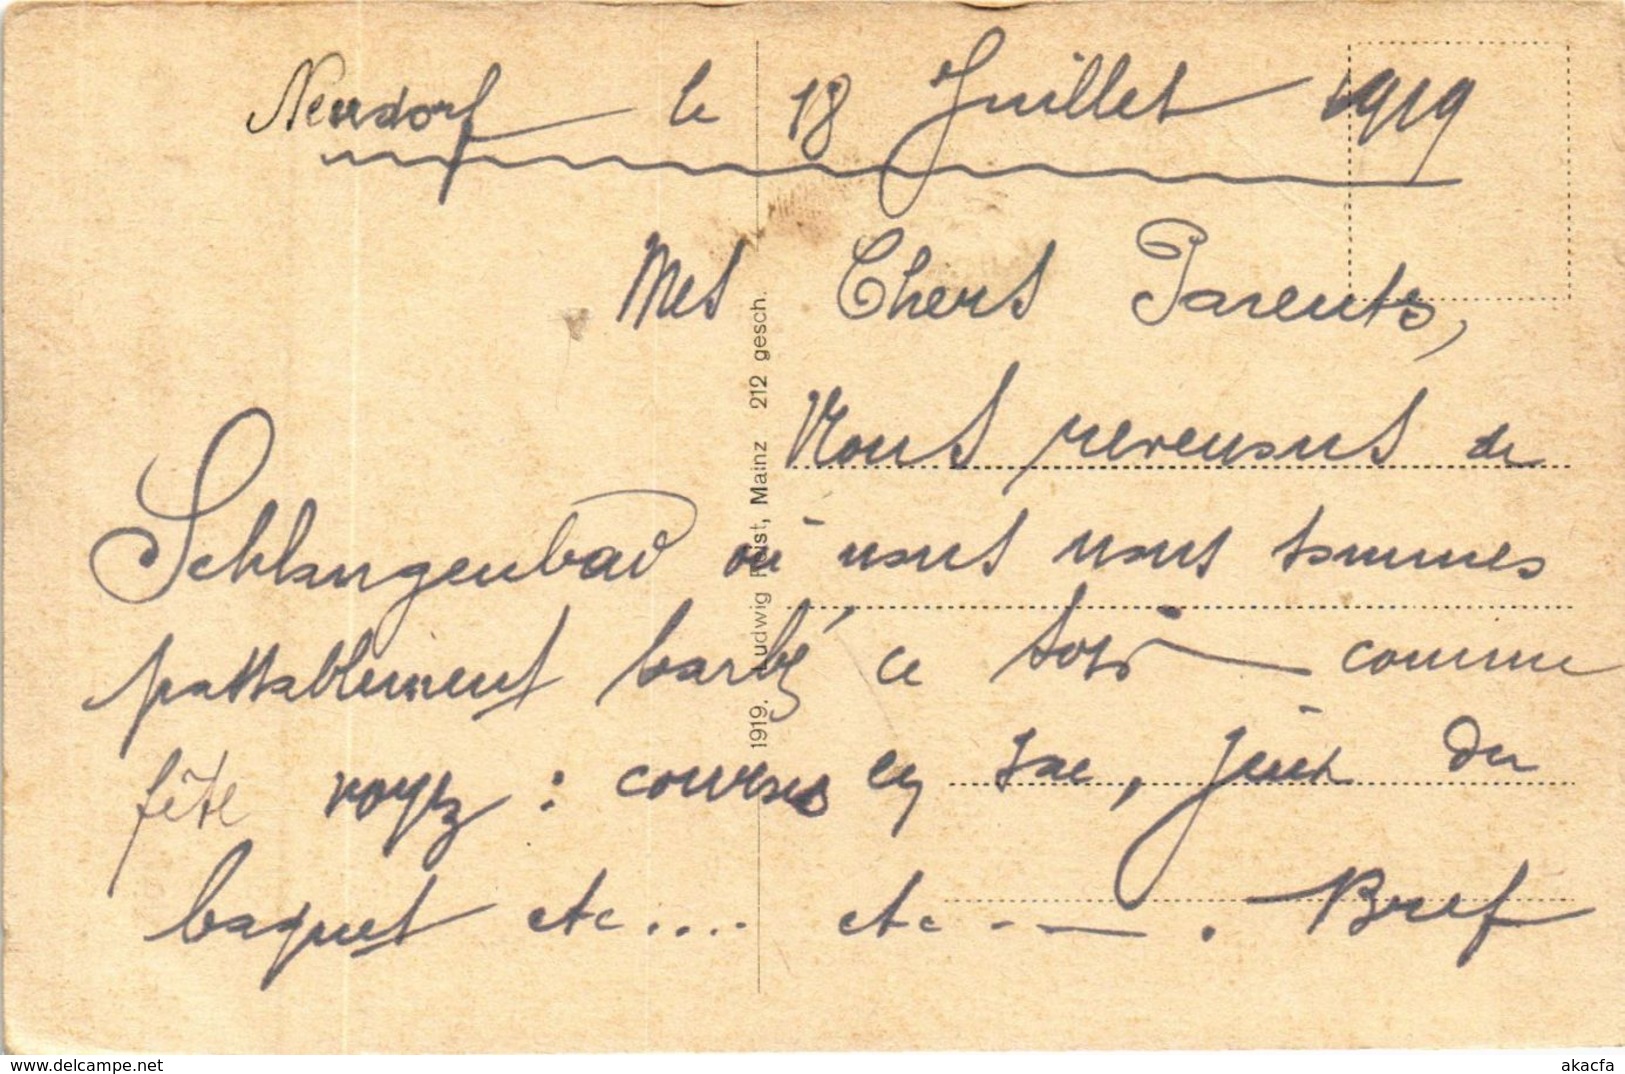 Neudorf le 18 Juillet 1919
Mes Chers Parents,
Nous revenons de
Schlangenbad où nous nous sommes
passablement barbé ce soir comme
fête voyez : courses en sac, jeux du
baquet etc.... etc - - . Bref
1919. Ludwig Feist, Mainz 212 gesch.
www.delcampe.net
akacfa